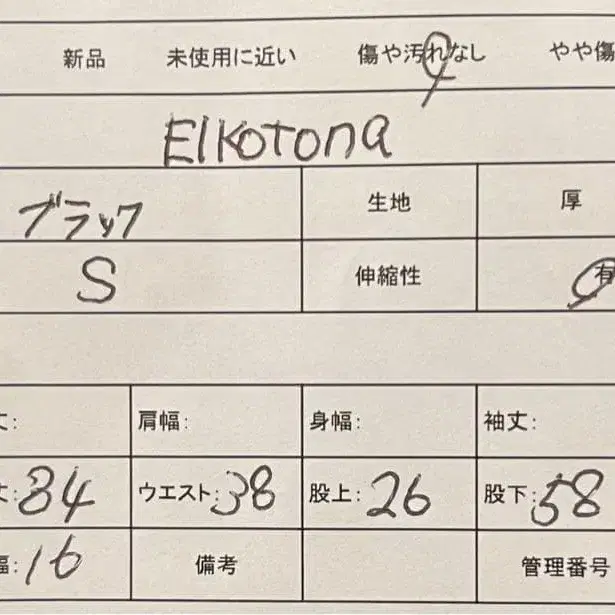 新品 未使用に近い 傷や汚れなし やや傷
Elkotona
ブラック 生地 厚
S 伸縮性 有
丈: 肩幅: 身幅: 袖丈:
丈:84 ウエスト:38 股上:26 股下:58
幅:16 備考 管理番号